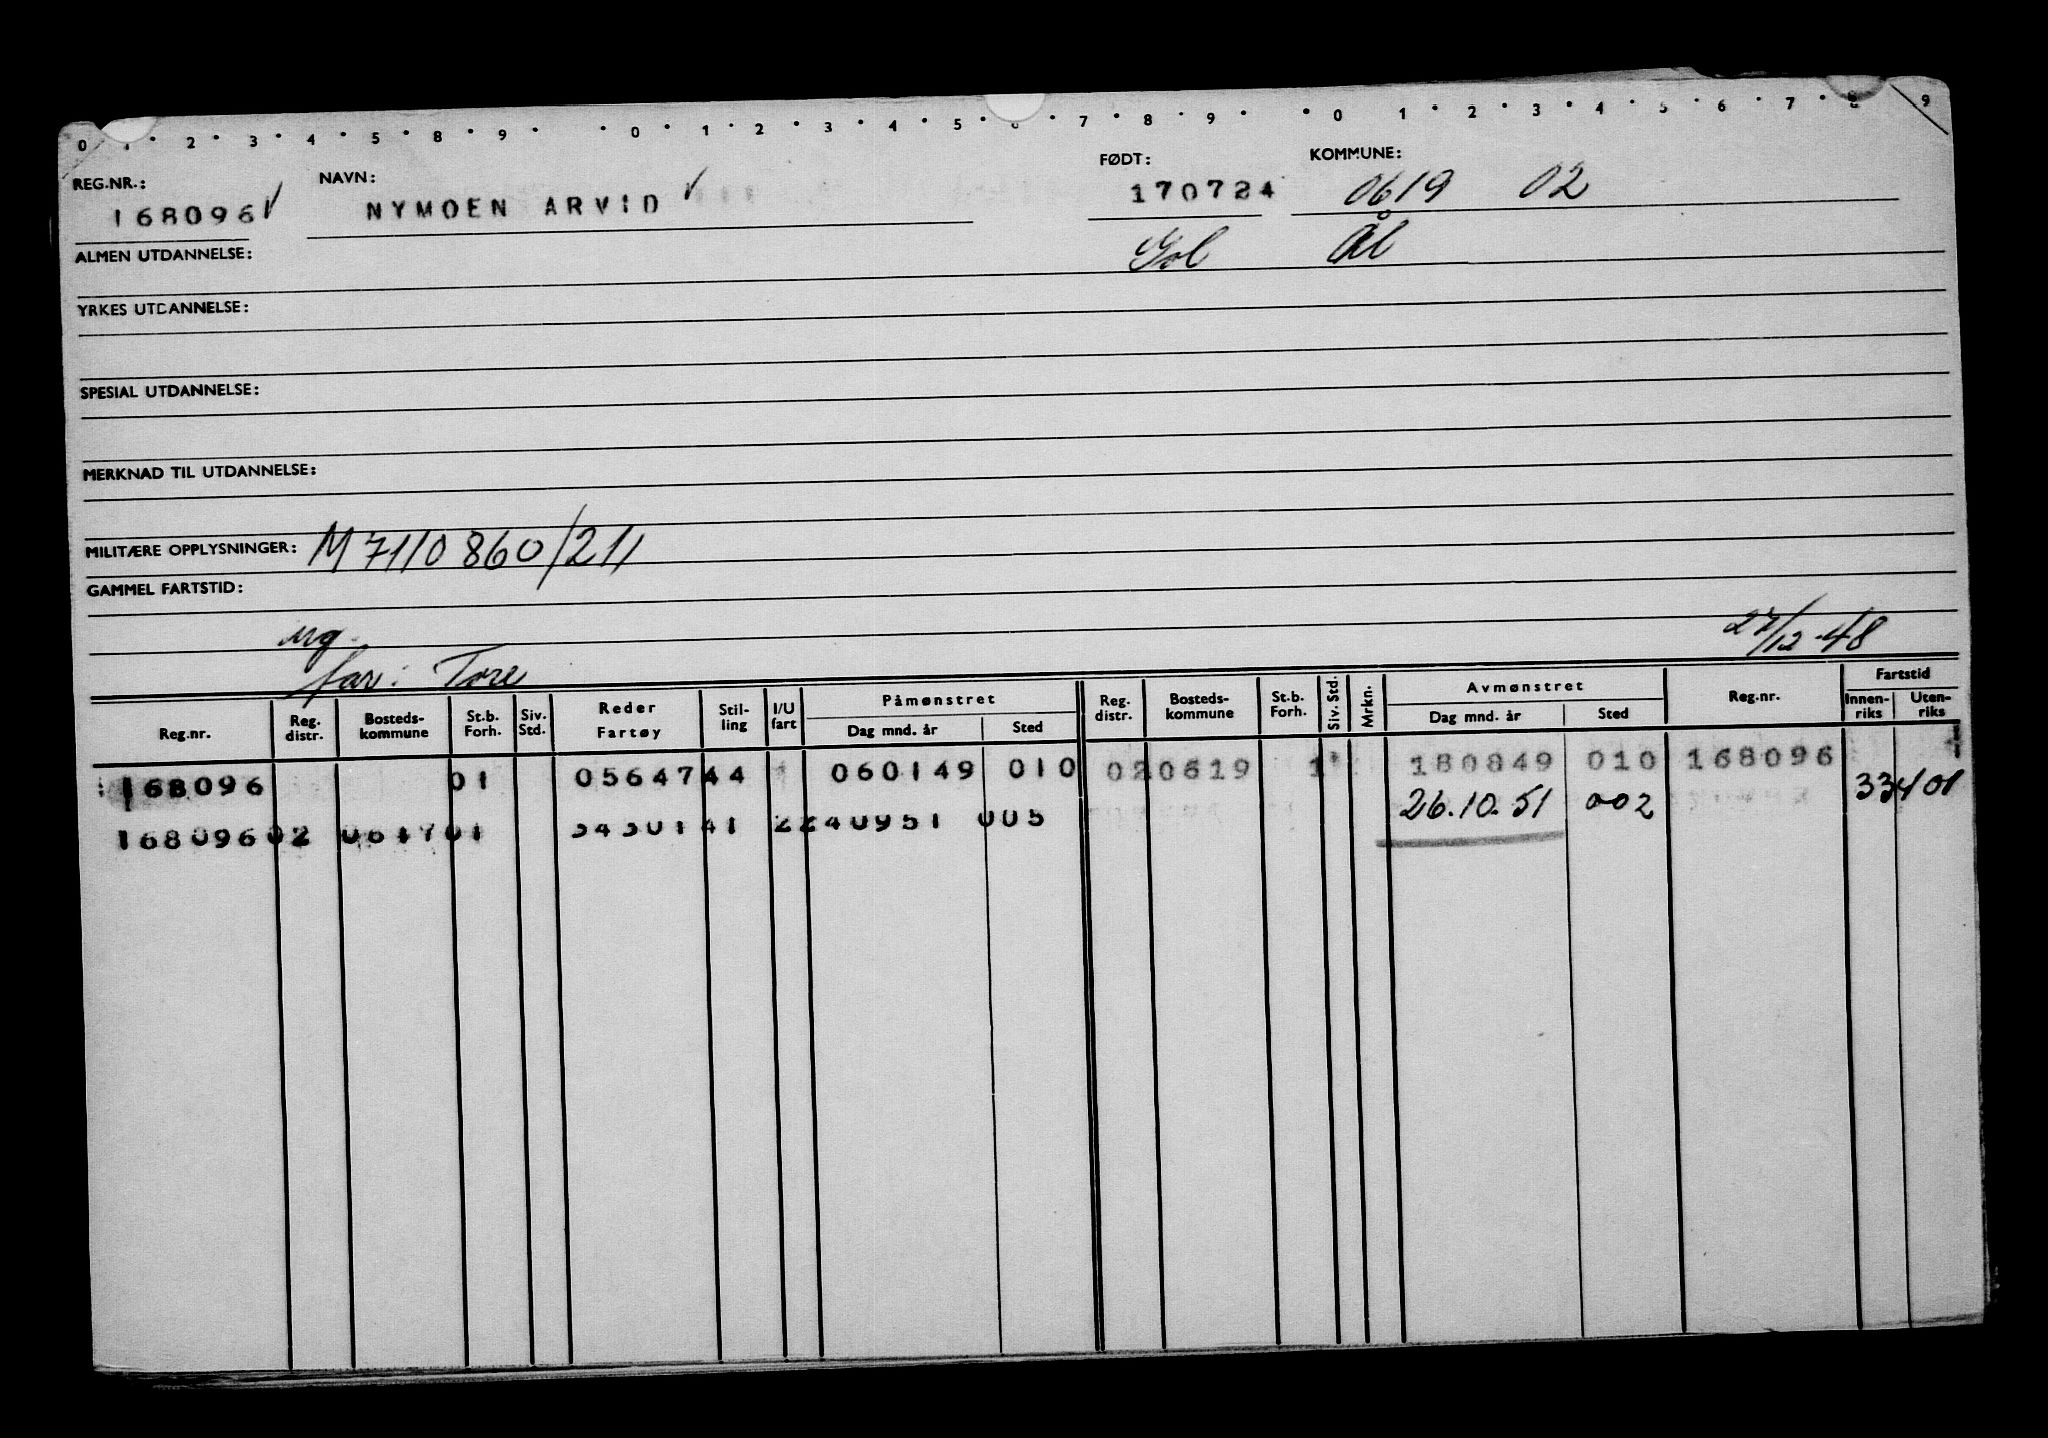 0 1 2 3 4 5 8 9 0 1 2 3 4 5 6 7 8 9 0 1 2 3 4 5 6 7 8 9
REG.NR.: NAVN: FØDT: KOMMUNE:
168096 ✓ NYMOEN ARVID ✓ 170724 0619 02
ALMEN UTDANNELSE: Gol Ål
YRKES UTDANNELSE:
SPESIAL UTDANNELSE:
MERKNAD TIL UTDANNELSE:
MILITÆRE OPPLYSNINGER: M 7110860/211
GAMMEL FARTSTID:
ug. 27/12-48
far: Tore
Reg.nr. Reg. distr. Bosteds-kommune St.b. Forh. Siv. Std. Reder Fartøy Stil-ling I/U fart Påmønstret Dag mnd. år Sted Reg. distr. Bosteds-kommune St.b. Forh. Siv. Std. Mrkn. Avmønstret Dag mnd. år Sted Reg.nr. Fartstid Innen-riks Uten-riks
168096 01 05647 44 060149 010 02 0619 1 180849 010 168096
26.10.51 002 33401
168096 02 01 41 2 240951 005